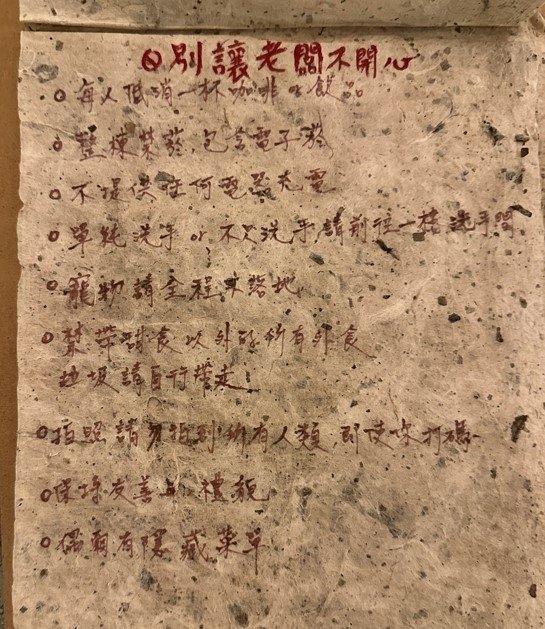 別讓老闆不開心
每人低消一杯咖啡or飲品
整棟禁菸,包含電子菸
不提供任何電器充電
單純洗手 or 不只洗手,請前往一樓洗手間
寵物請全程不落地
禁帶 食以外 所有外食
垃圾請自行帶走
拍照請勿拍到所有人類 即使你打碼
保持友善與禮貌
偶爾有隱藏菜單